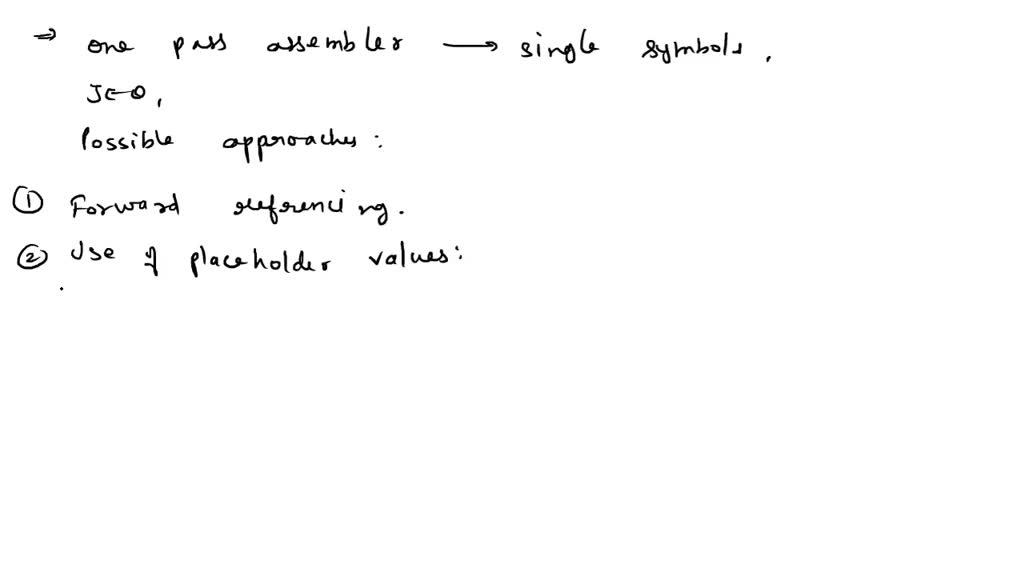 ⇒ one pass assembler → single symbols.
J←0,
Possible approaches:
① Forward referencing.
② Use of placeholder values: